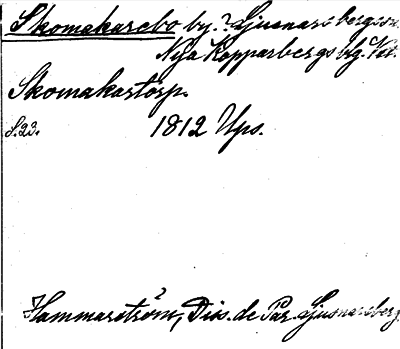 Skomakarebo by. ? Ljusnarsbergs sn.
Nya Kopparbergs bg. Vst.
Skomakartorp.
S. 23. 1812 Ups.
Hammarström, Dis. de Par. Ljusnarsberg